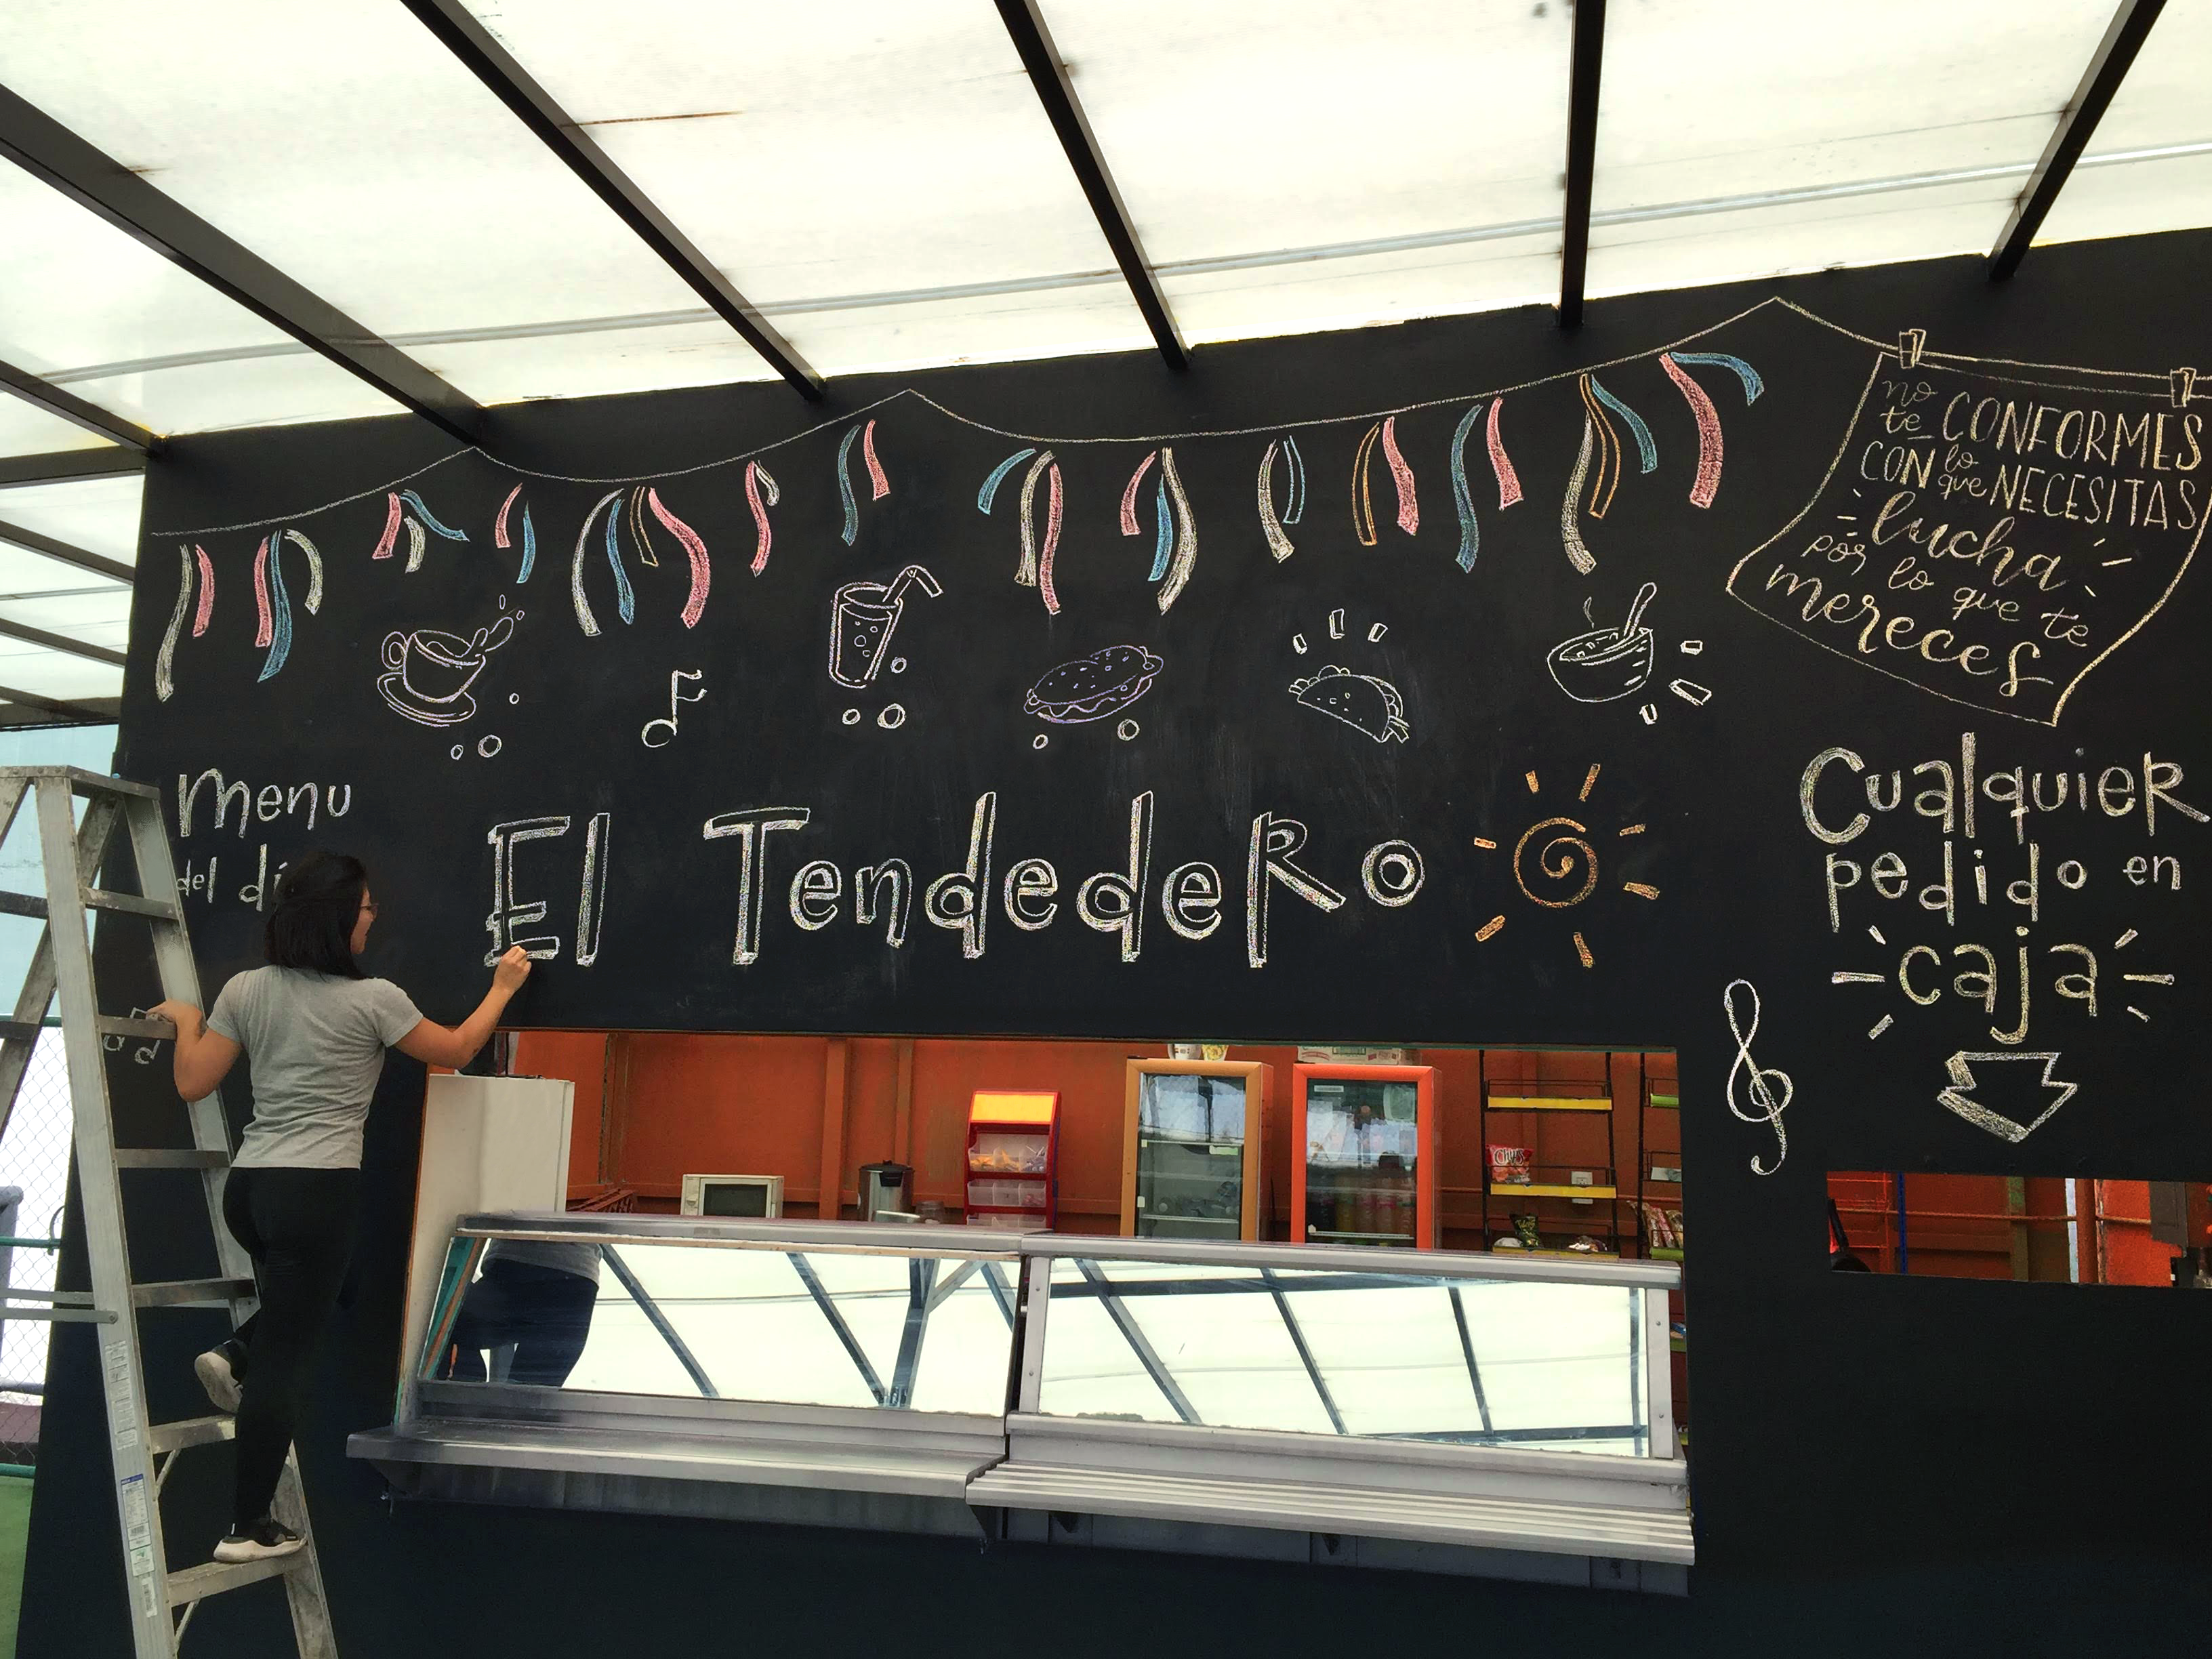 no
te CONFORMES
CON lo que NECESITAS
lucha
por lo que te
mereces
Menu
del dí
El Tendedero
Cualquier
pedido en
caja